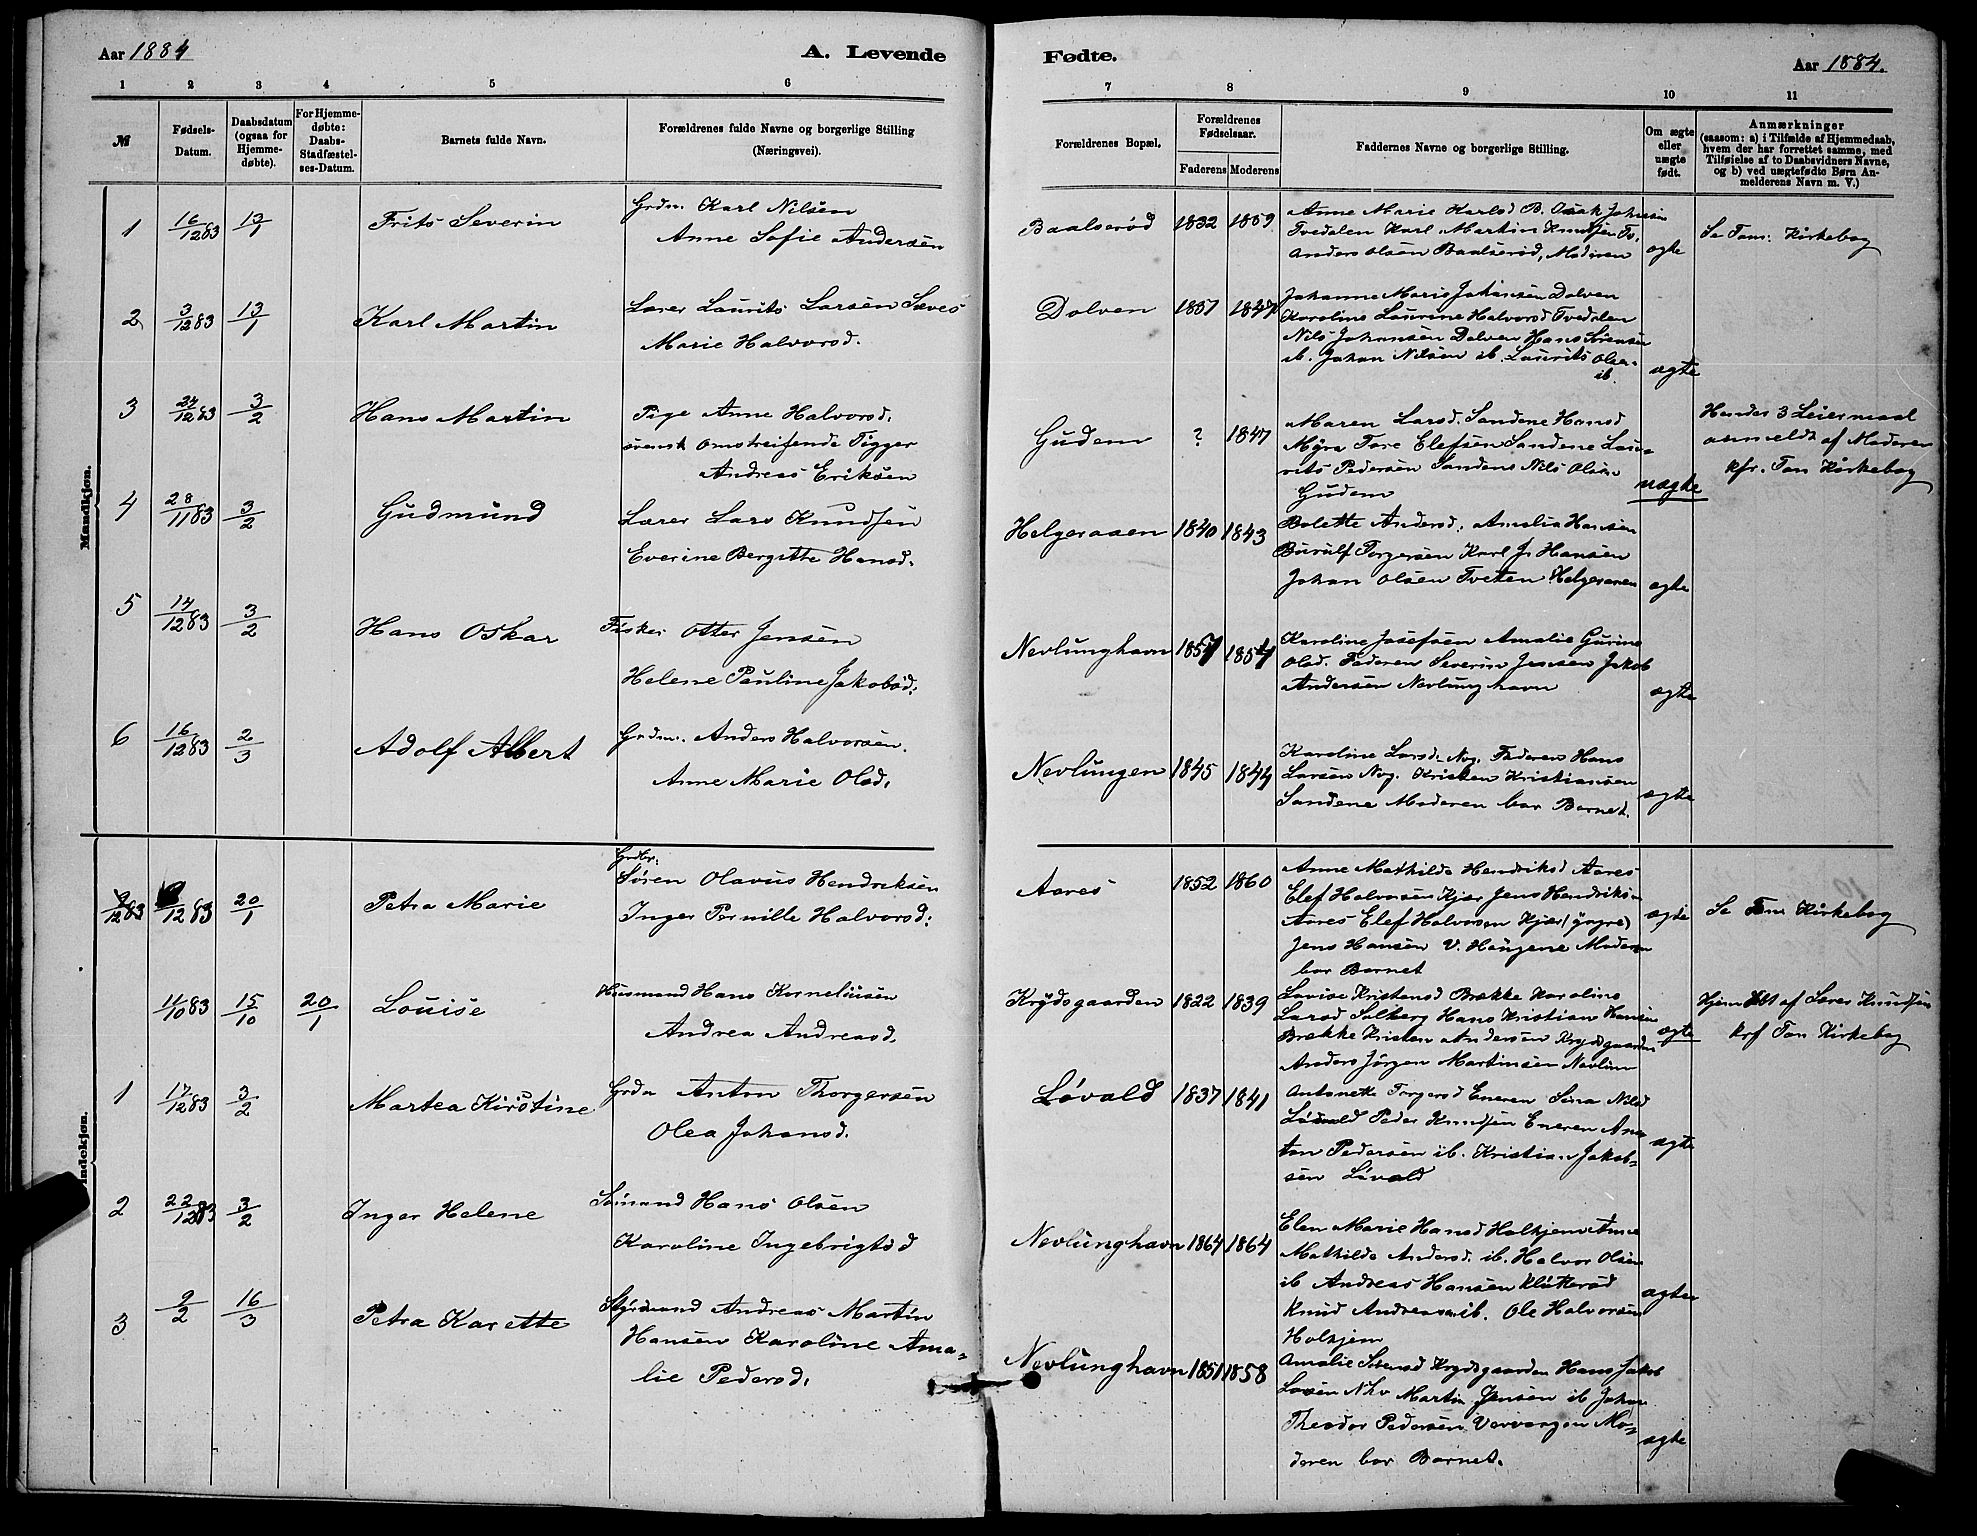 Aar 1884
A. Levende
Fødte.
Aar 1884.
1 2 3 4 5 6
7 8 9 10 11
№
Fødsels-
Datum.
Daabsdatum
(ogsaa for
Hjemme-
døbte).
For Hjemme-
døbte:
Daabs-
Stadfæstel-
ses-Datum.
Barnets fulde Navn.
Forældrenes fulde Navne og borgerlige Stilling
(Næringsvei).
Forældrenes Bopæl.
Forældrenes
Fødselsaar.
Faderens Moderens
Faddernes Navne og borgerlige Stilling.
Om ægte
eller
uægte
født.
Anmærkninger
(saasom: a) i Tilfælde af Hjemmedaab,
hvem der har forrettet samme, med
Tilføielse af to Daabsvidners Navne,
og b) ved uægtefødte Børn An-
melderens Navn m. V.)
Mandkjøn.
1 16/12 83 13/1 Frits Severin
Grdm. Karl Nilsen
Anne Sofie Andersen
Baalserød 1832 1859
Anne Marie Karlsd B. Isak Johansen
Tvedalen Karl Martin Knudsen Tv.
Anders Olsen Baalserød, Moderen
ægte
Se Tom. Kirkebog
2 3/12 83 13/1 Karl Martin
Lærer Laurits Larsen
Marie Halvorsd.
Dolven 1857 1847
Johanne Marie Johansen Dolven
Karoline Laurine Halvorsd Tvedalen
Nils Johansen Dolven Hans Sørensen
ib. Johan Nilsen ib. Laurits Olsen
ib.
ægte
3 24/12 83 3/2 Hans Martin
Pige Anne Halvorsd.
svensk omstreifende Tigger
Andreas Eriksen
Gudem ? 1847
Maren Larsd. Sandene Hansd
Myra Tore Elefsen Sandene Lau-
rits Pedersen Sandene Nils Olsen
Gudem
uægte
Hendes 3 Leiermaal
anmeldt af Moderen
kfr. Ton Kirkebog
4 28/11 83 3/2 Gudmund
Lærer Lars Knudsen
Everine Bergitte Hansd.
Helgeraaen 1840 1843
Bolette Andersd. Amalia Hansen
Burulf Torgersen Karl J. Hansen
Johan Olsen Tveten Helgeraaen
ægte
5 14/12 83 3/2 Hans Oskar
Fisker Otter Jensen
Helene Pauline Jakobsd.
Nevlunghavn 1857 1854
Karoline Josefsen Amalie Gurine
Olsd. Faderen Severin Jensen Jakob
Andersen Nevlunghavn
ægte
6 16/12 83 2/3 Adolf Albert
Grdm. Anders Halvorsen.
Anne Marie Olsd.
Nevlungen 1845 1844
Karoline Larsd. Nvg. Faderen Hans
Larsen Nvg. Kristen Kristiansen
Sandene Moderen bar Barnet.
ægte
12 83 12 83 20/1 Petra Marie
Grdbr.
Søren Olavus Hendriksen
Inger Pernille Halvorsd.
Aares 1852 1860
Anne Mathilde Hendriksd Aares
Elef Halvorsen Kjær Jens Hendriksen
Aares Elef Halvorsen Kjær (yngre)
Jens Hansen V. Haugene Moderen
bar Barnet
ægte
Se Tom Kirkebog
11/10 83 15/10 20/1 Louise
Husmand Hans Kornelius­sen
Andrea Andreasd.
Krydsgaarden 1822 1839
Lovise Kristensd Brække Karoline
Larsd Solberg Hans Kristian Hansen
Brække Kristen Andersen Krydsgaarden
Anders Jørgen Martinsen Nevlun
ægte
Hjemdøbt af Lærer Knudsen
krf Ton Kirkebog
1 17/12 83 3/2 Martea Kirstine
Grdm Anton Thorgersen
Olea Johansd.
Løvald 1837 1841
Antonette Torgersd Eneren Sina Nilsd
Løvald Peder Knudsen Eneren An-
ton Pedersen ib. Kristian Jakob-
sen Løvald
ægte
2 22/12 83 3/2 Inger Helene
Sømand Hans Olsen
Karoline Ingebrigtsd
Nevlunghavn 1864 1864
Elen Marie Hansd Holkjem Anne
Mathilde Andersd. ib. Halvor Olsen
ib Andreas Hansen
Knud Andreassen ib. Ole Halvorsen
Holkjem
ægte
3 9/2 16/3 Petra Karette
Styrmand Andreas Martin
Hansen Karoline Ama-
lie Pedersd.
Nevlunghavn 1851 1858
Amalie Krydsgaarden Hans Jakob
Larsen Nhv Martin Jensen ib Johan
Theodor Pedersen Vervangen Mo-
deren bar Barnet.
ægte